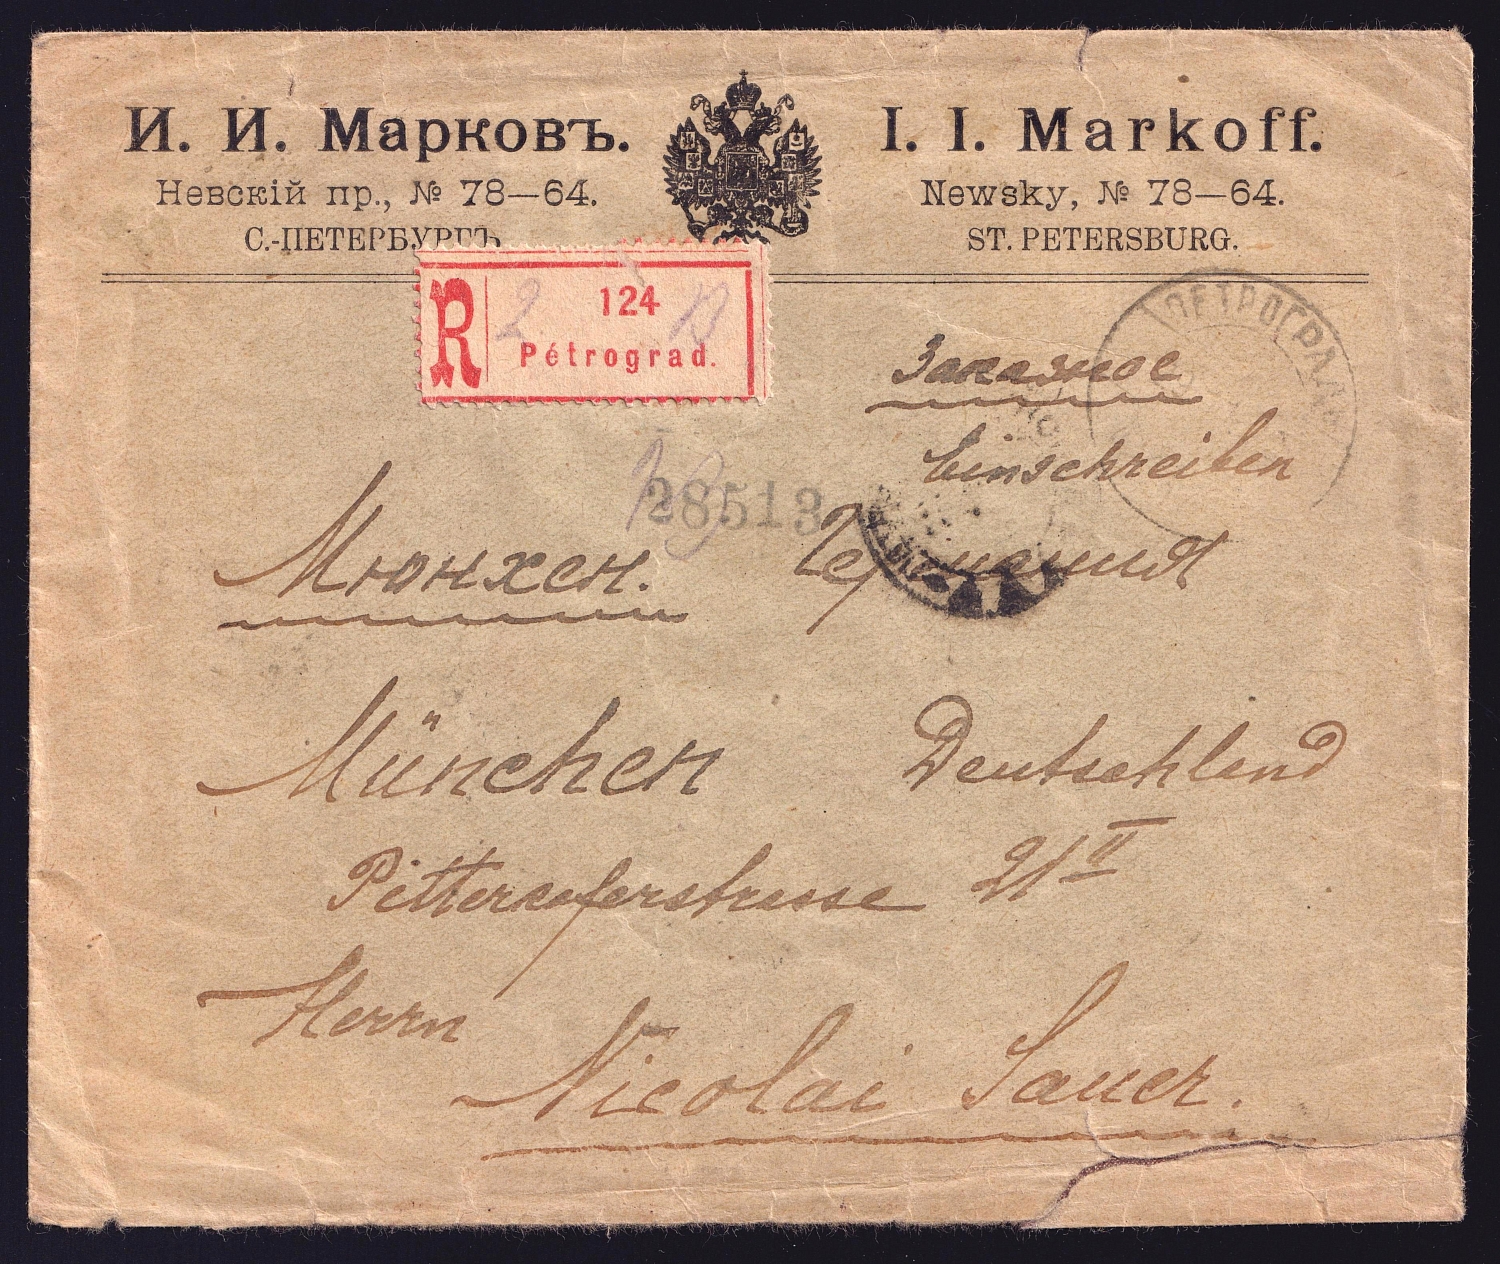 И. И. Марковъ.
Невскій пр., № 78—64.
С.-ПЕТЕРБУРГЪ
I. I. Markoff.
Newsky, № 78—64.
ST. PETERSBURG.
R
124
Pétrograd.
ПЕТРОГРАДЪ
Заказное
Einschreiben
28513
Мюнхен. Германия
München Deutschland
Pitterseferstrasse 21 II
Herrn
Nicolai Sauer.